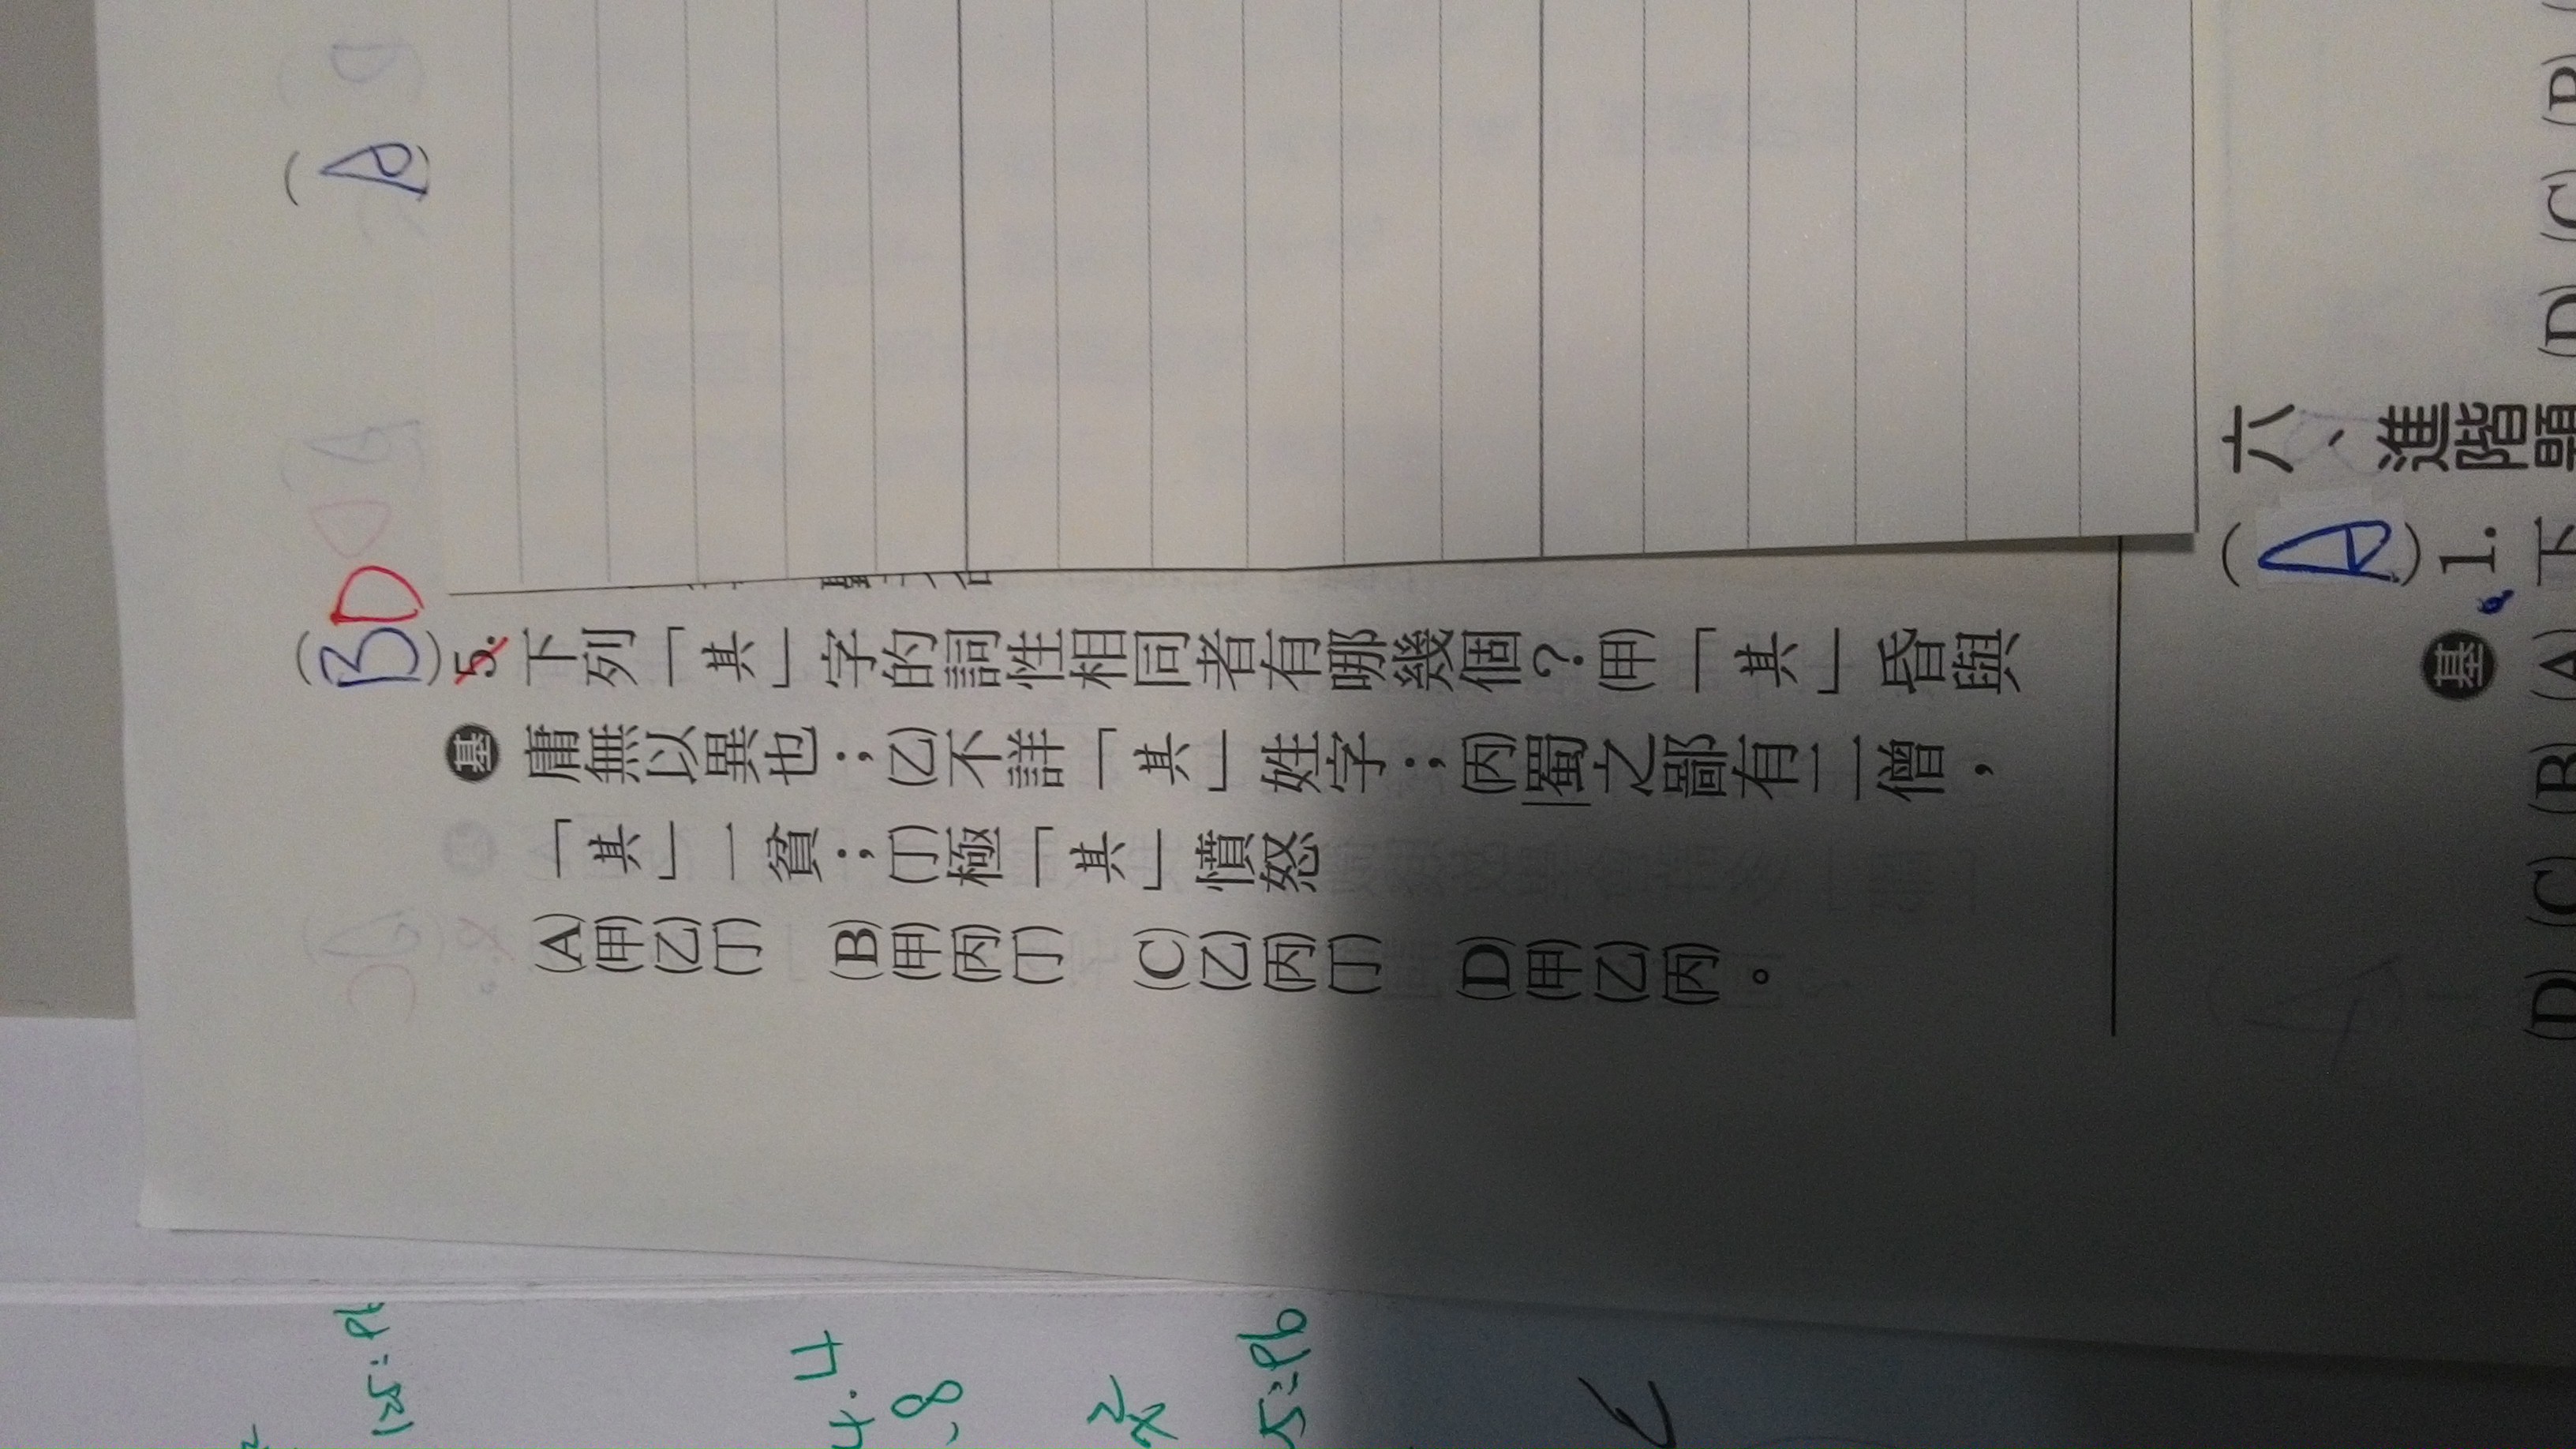 (A)
(BD) 5. 下列「其」字的詞性相同者有哪幾個？(甲)「其」昏與
基 庸無以異也；(乙)不詳「其」姓字；(丙)蜀之鄙有二僧，
「其」一貧；(丁)極「其」憤怒
(A)(甲)(乙)(丁) (B)(甲)(丙)(丁) (C)(乙)(丙)(丁) (D)(甲)(乙)(丙)。
六、進階題
(A) 1. 下
基 (A)
(B)
(C)
(D)
(B)
(C)
(D)
125=Pb
4.4
8
5=Pb